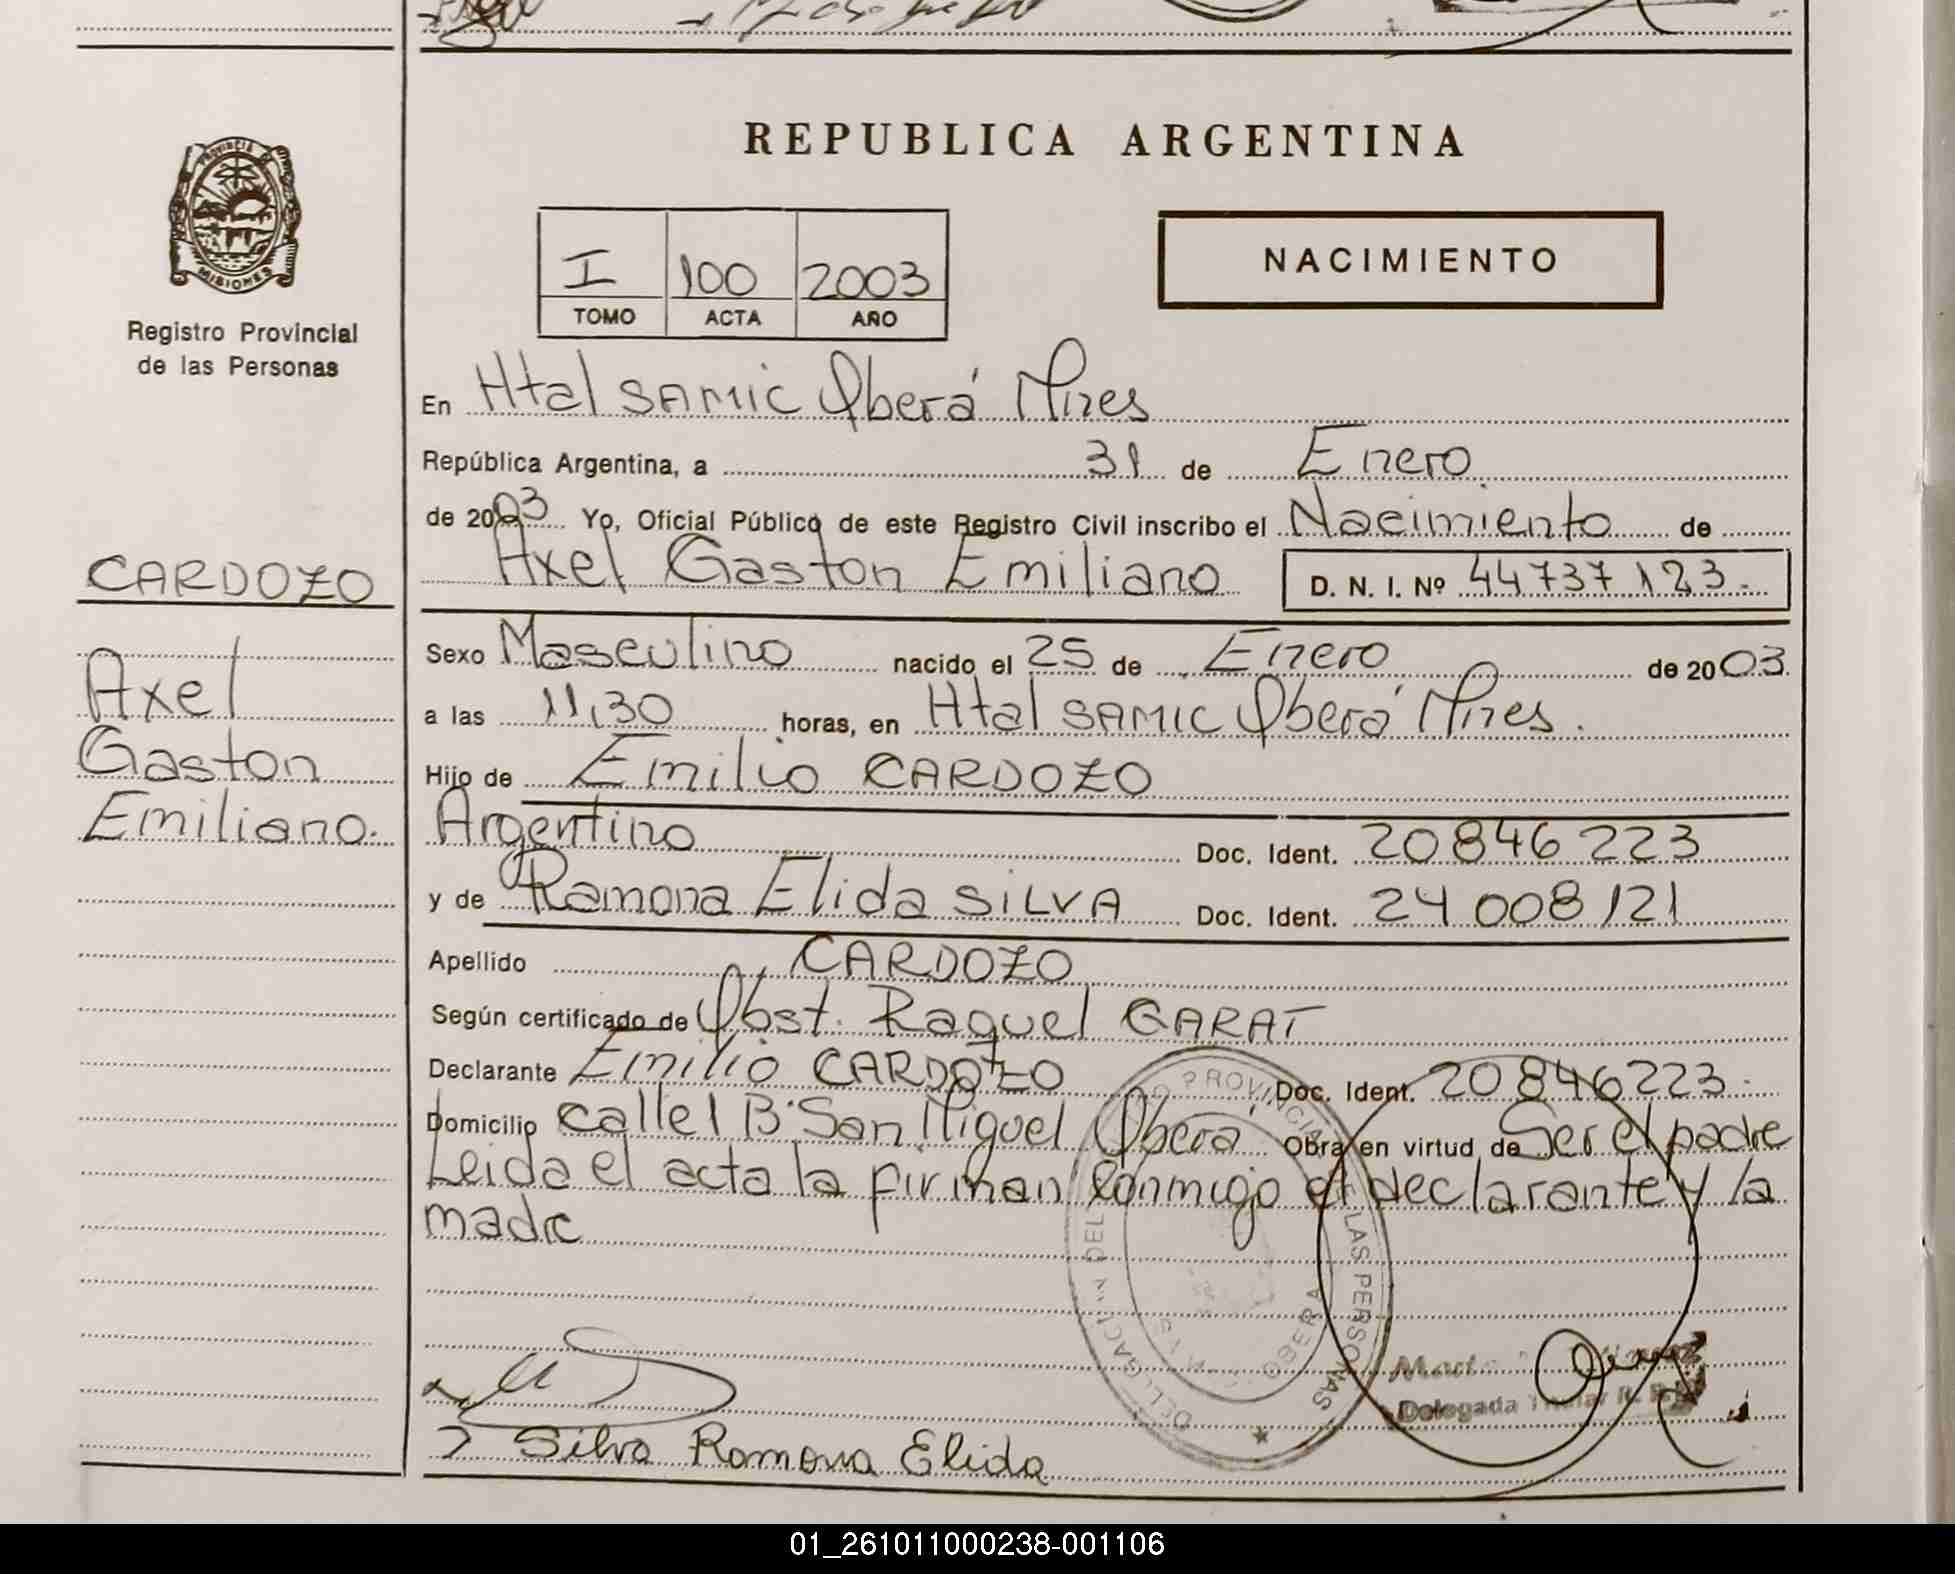 REPUBLICA ARGENTINA
PROVINCIA DE
MISIONES
Registro Provincial
de las Personas
I 100 2003
TOMO ACTA AÑO
NACIMIENTO
En Htal SAMIC Oberá Mnes
República Argentina, a 31 de Enero
de 2003 Yo, Oficial Público de este Registro Civil inscribo el Nacimiento de
Axel Gaston Emiliano D. N. I. Nº 44737123.
CARDOZO
Axel
Gaston
Emiliano.
Sexo Masculino nacido el 25 de Enero de 2003.
a las 11,30 horas, en Htal SAMIC Oberá Mnes.
Hijo de Emilio CARDOZO
Argentino Doc. Ident. 20846223
y de Ramona Elida SILVA Doc. Ident. 24 008121
Apellido CARDOZO
Según certificado de Obst. Raquel GARAT
Declarante Emilio CARDOZO Doc. Ident. 20846223.
Domicilio calle 1 Bº San Miguel Oberá Obra en virtud de Ser el padre
Leida el acta la firman conmigo el declarante y la
madre
OBERA
Delegada Titular R. P.
Silva Ramona Elida
01_261011000238-001106